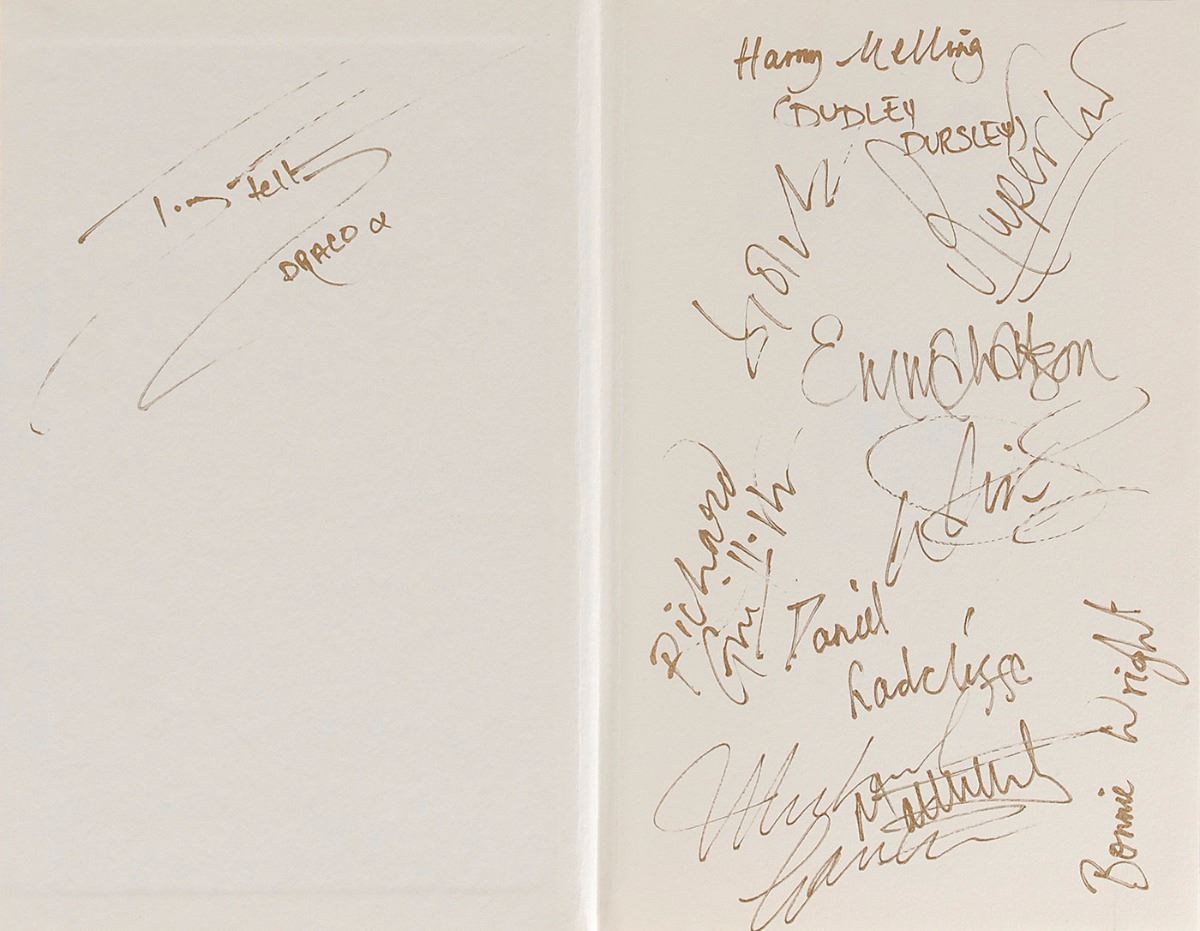 Tom Felton
DRACO
Harry Melling
(DUDLEY
DURSLEY)
Rupert
Emma Watson
Richard
Griffiths
Daniel
Radcliffe
Michael
Matthew
Bonnie Wright